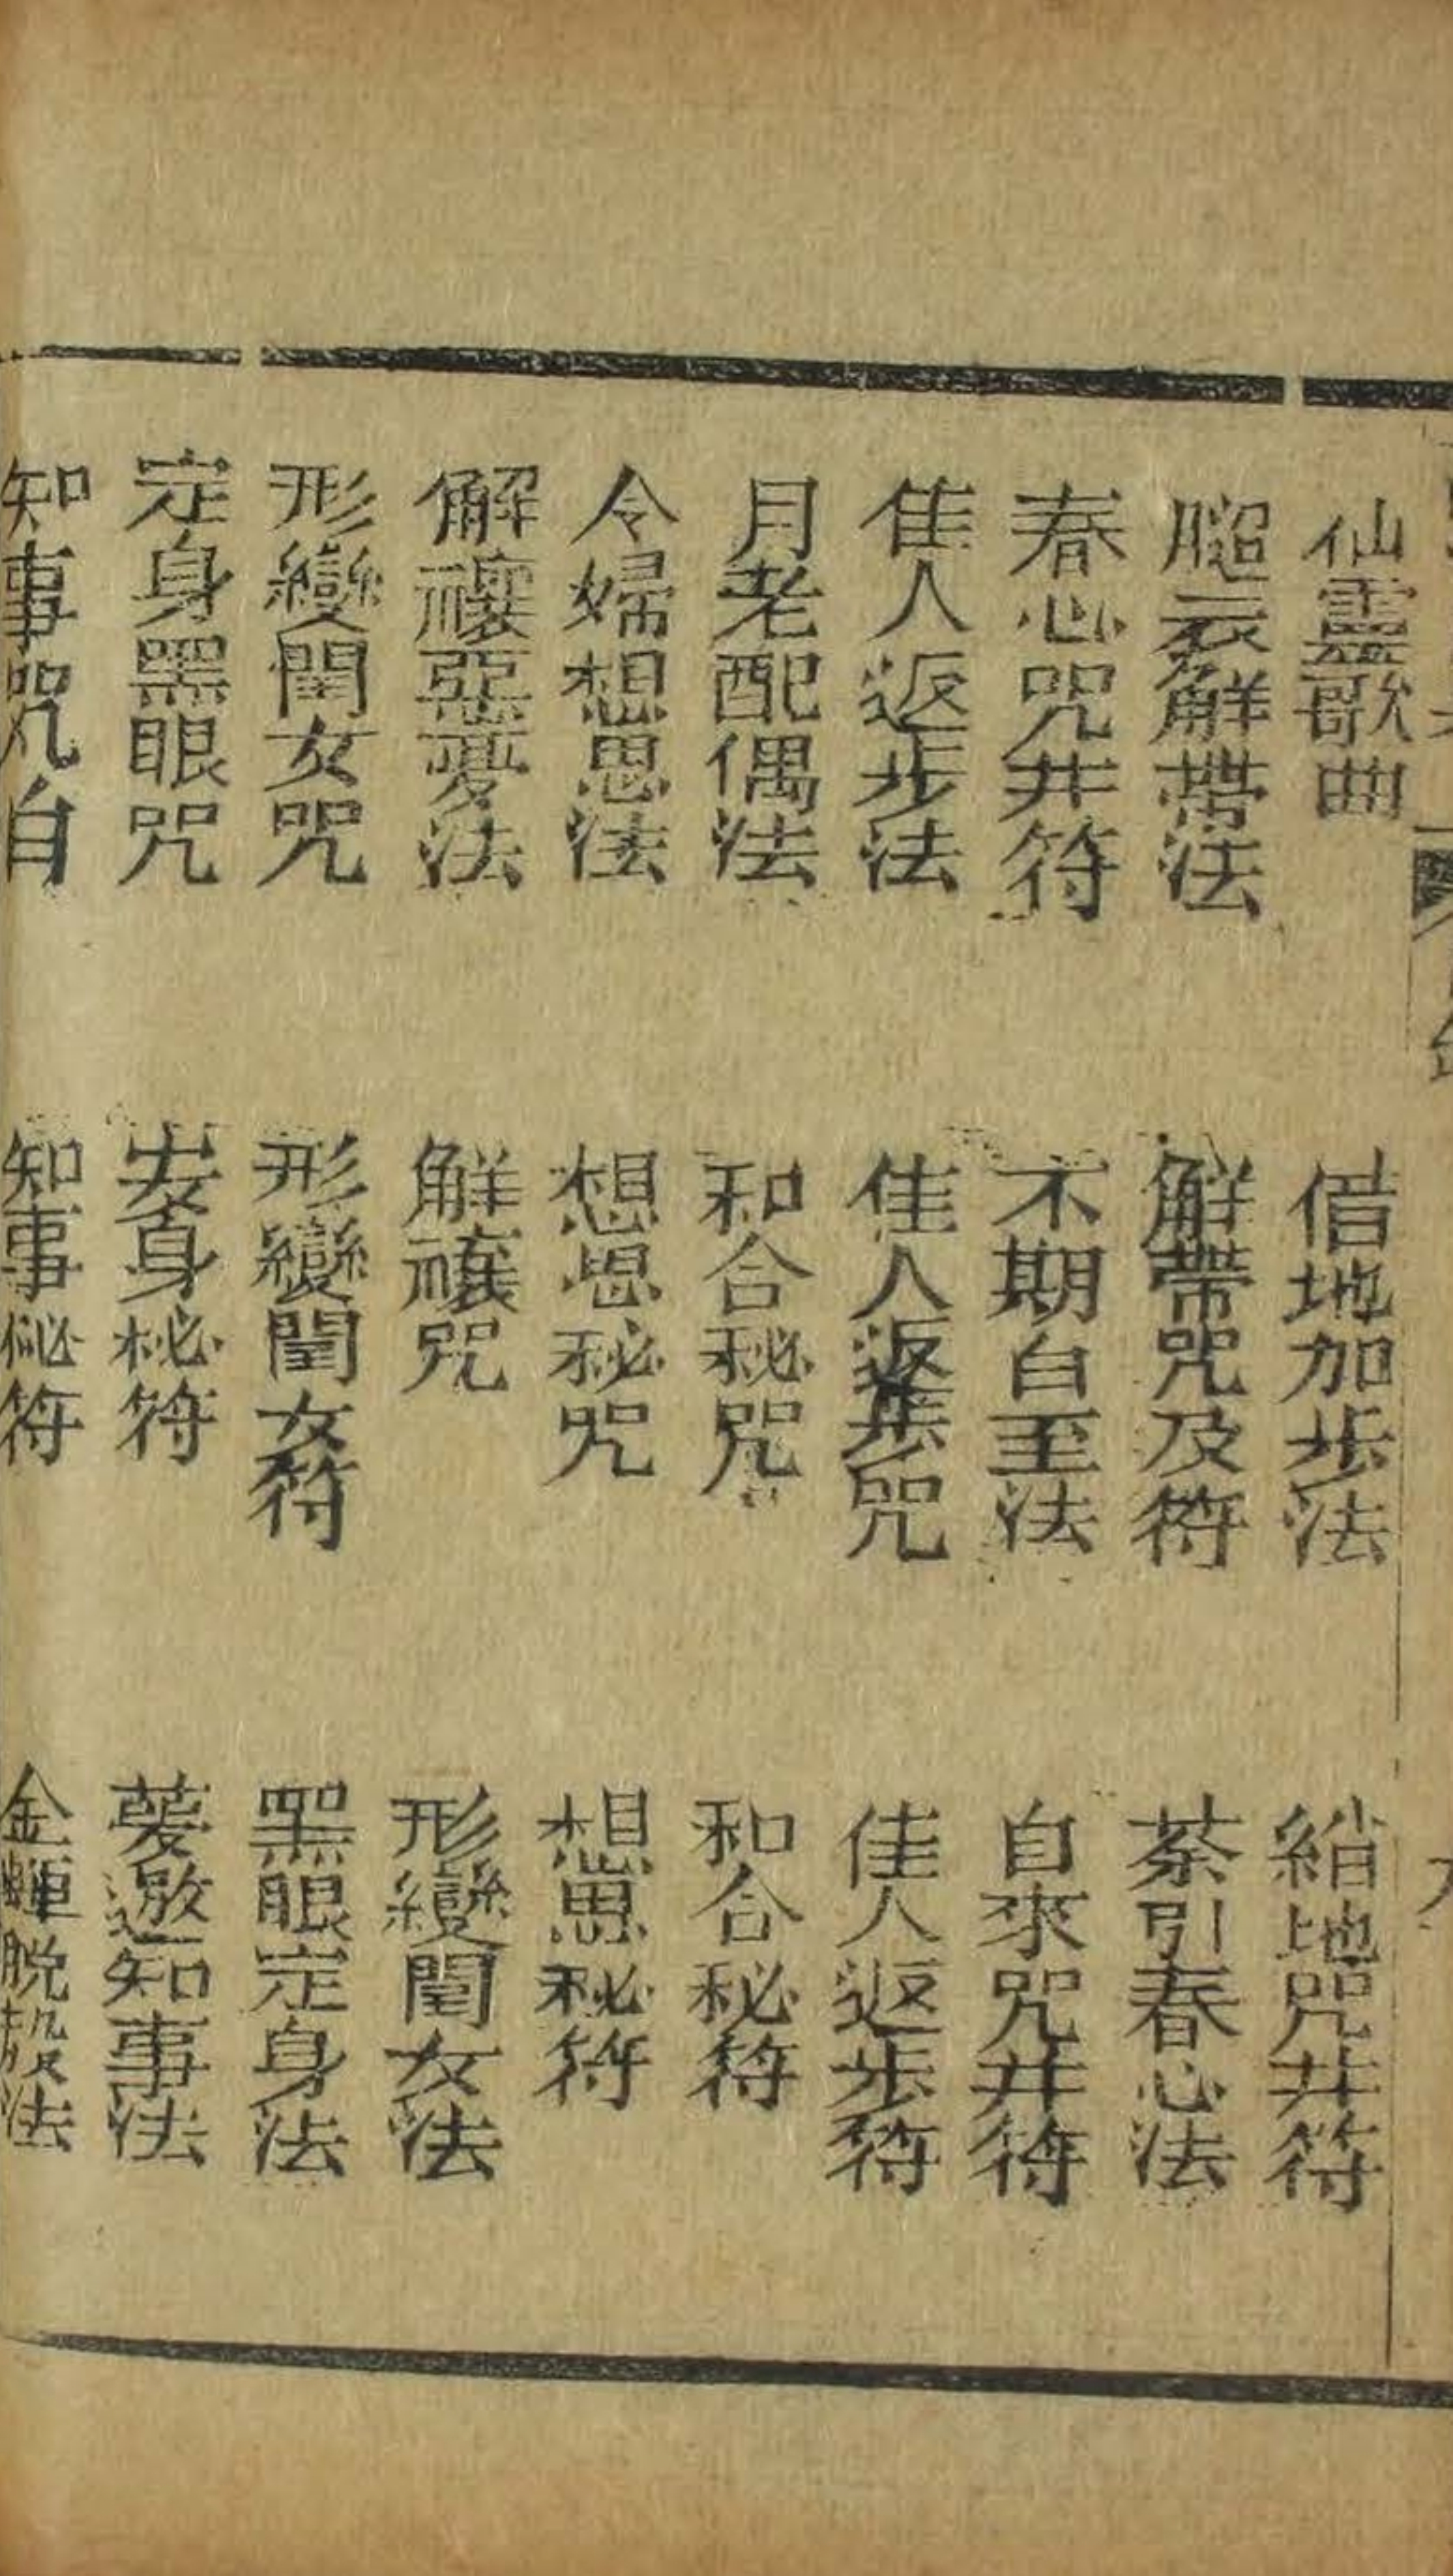 仙靈歌曲
借地加步法
縮地咒并符
腿衣解帶法
解帶咒及符
茶引春心法
春心咒并符
不期自至法
自來咒并符
隹人返步法
佳人返步咒
佳人返步符
月老配偶法
和合秘咒
和合秘符
令婦想思法
想思秘咒
想思秘符
解禳惡憂法
觧禳咒
形變閨女法
形變閨女咒
形變閨女符
黑眼定身法
定身黑眼咒
安身秘符
蔓邀知事法
知事咒自
知事秘符
金蟬脫殼法